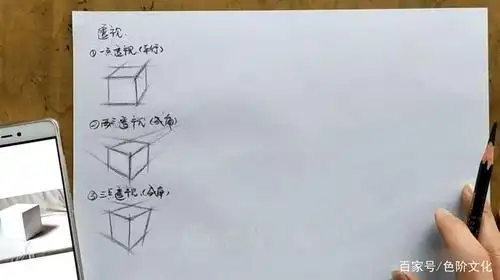 透视
①一点透视(平行)
②两点透视(成角)
③三点透视(成角)
百家号/色阶文化